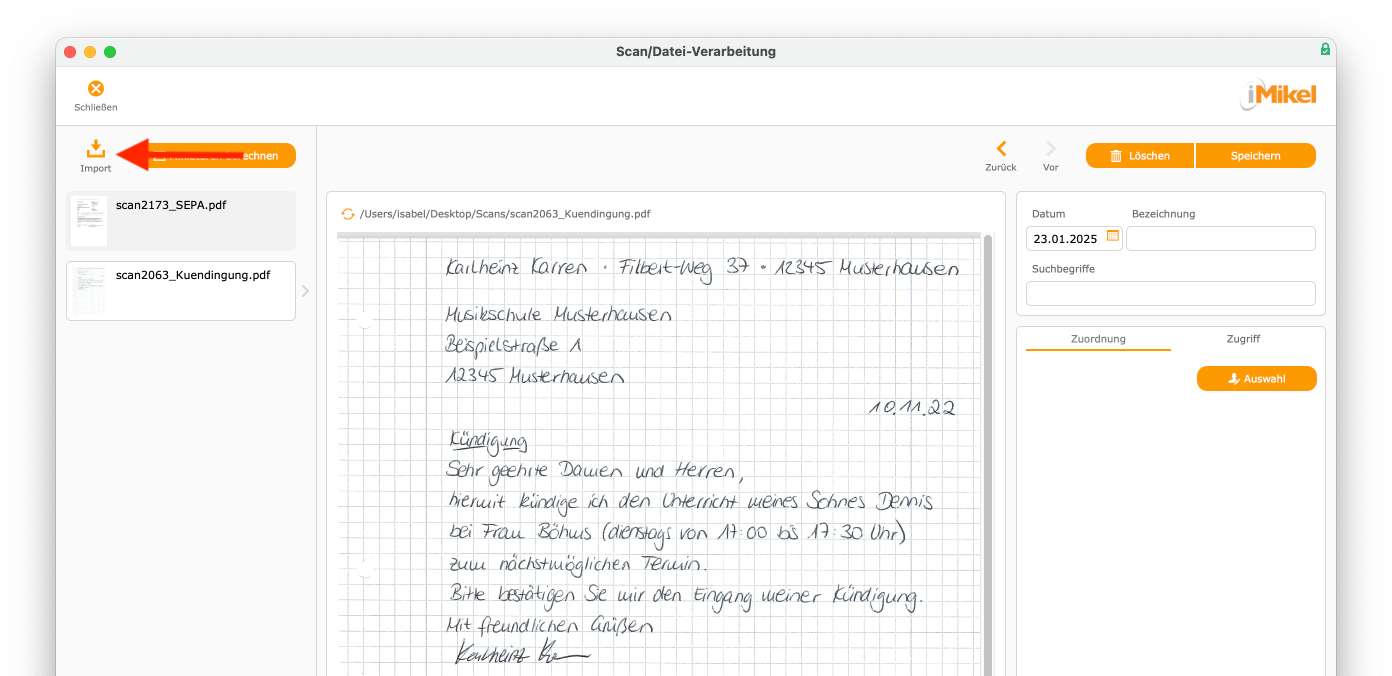 Scan/Datei-Verarbeitung
Schließen
iMikel
Import
Zurück
Vor
Löschen
Speichern
scan2173_SEPA.pdf
scan2063_Kuendingung.pdf
/Users/isabel/Desktop/Scans/scan2063_Kuendingung.pdf
Karlheinz Karren · Filbert-Weg 37 · 12345 Musterhausen
Musikschule Musterhausen
Beispielstraße 1
12345 Musterhausen
10.11.22
Kündigung
Sehr geehrte Damen und Herren,
hiermit kündige ich den Unterricht meines Sohnes Dennis
bei Frau Böhms (dienstags von 17:00 bis 17:30 Uhr)
zum nächstmöglichen Termin.
Bitte bestätigen Sie mir den Eingang meiner Kündigung.
Mit freundlichen Grüßen
Karlheinz
Datum
Bezeichnung
23.01.2025
Suchbegriffe
Zuordnung
Zugriff
Auswahl